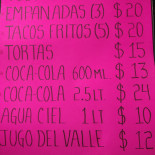 EMPANADAS (3) $ 20
• TACOS FRITOS (5) $ 20
• TORTAS $ 15
• COCA COLA 600 ML. $ 13
• COCA COLA 2.5 LT. $ 24
AGUA CIEL 1 LT $ 10
JUGO DEL VALLE $ 12